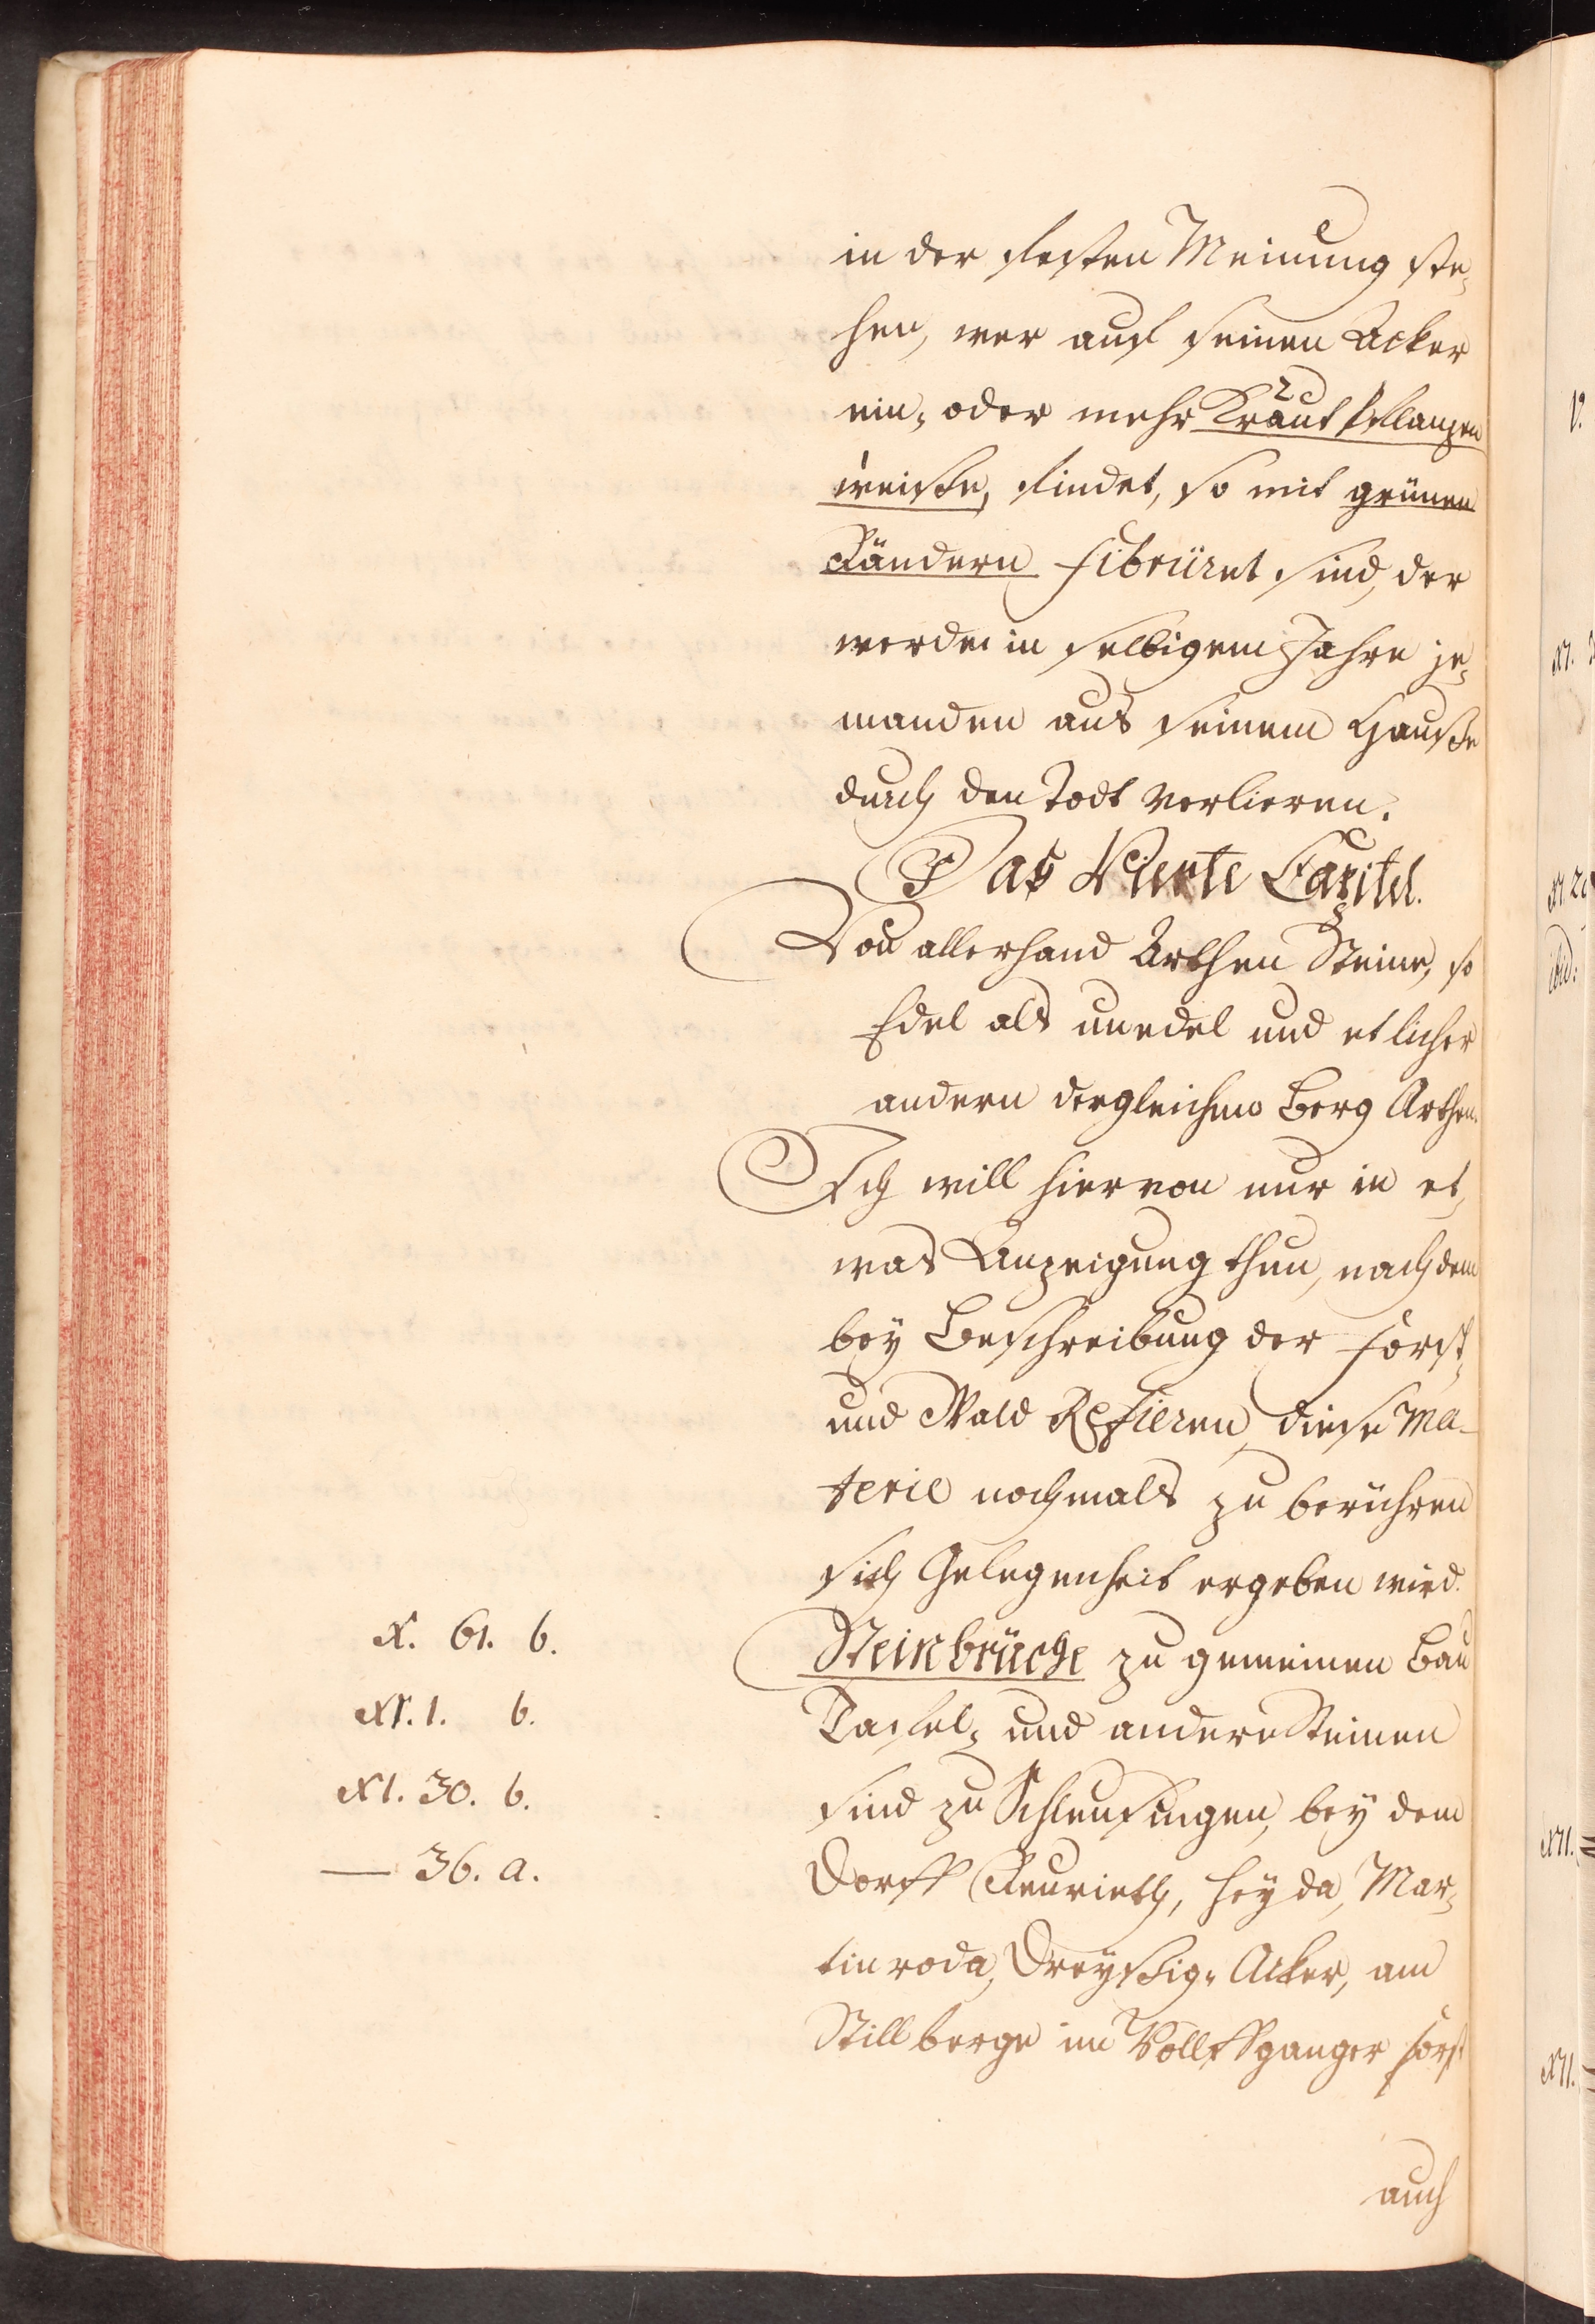 in der festen Meinung ste-
hen, wer auf seinen Acker
ein- oder mehr Kraut Pflanzen
weiße, findet, so mit grünen
Rändern fibrüret sind, der
werde in selbigem Jahre je-
manden aus seinem Hauße
durch den Todt verlieren.
Das Vierte Capitel.
Von allerhand Arthen Steine, so
Edel als unedel und etlicher
andern dergleichen Berg Arthen.
Ich will hiervon nur in et-
was Anzeigung thun, nachdem
bey Beschreibung der Forst-
und Wald Refieren, diese Ma-
terie nochmals zu berühren
sich Gelegenheit ergeben wird.
X. 61. b.
Steinbrüche zu gemeinen Bau
XI. 1. b.
Tachel- und andere Steinen
XI. 30. b.
sind zu Schleusingen, bey dem
— 36. a.
Dorff Reurieth, Heyda, Mar-
tinroda, Dreyßig-Acker, am
Stillberge im Vollkganger Forst
auch
V.
XI.
XI. 2
ibid:
XII.
XII.